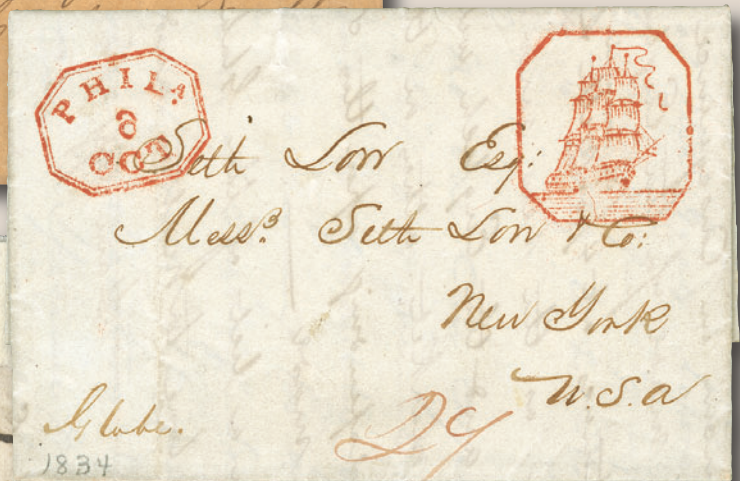 PHILA.
8
OCT
Seth Low Esq:
Messrs. Seth Low & Co:
New York
U.S.a
Globe.
1834